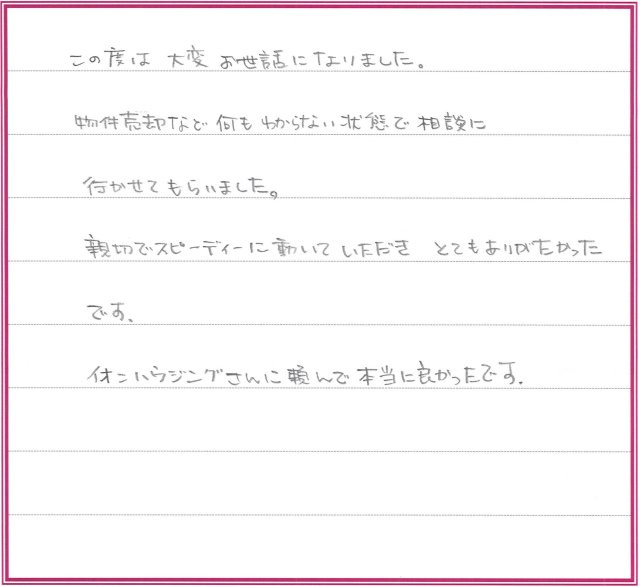 この度は 大変 お世話になりました。
物件売却など 何も わからない 状態で 相談に
行かせてもらいました。
親切でスピーディーに動いて いただき とてもありがたかった
です。
イオンハウジングさんに頼んで 本当に良かったです。